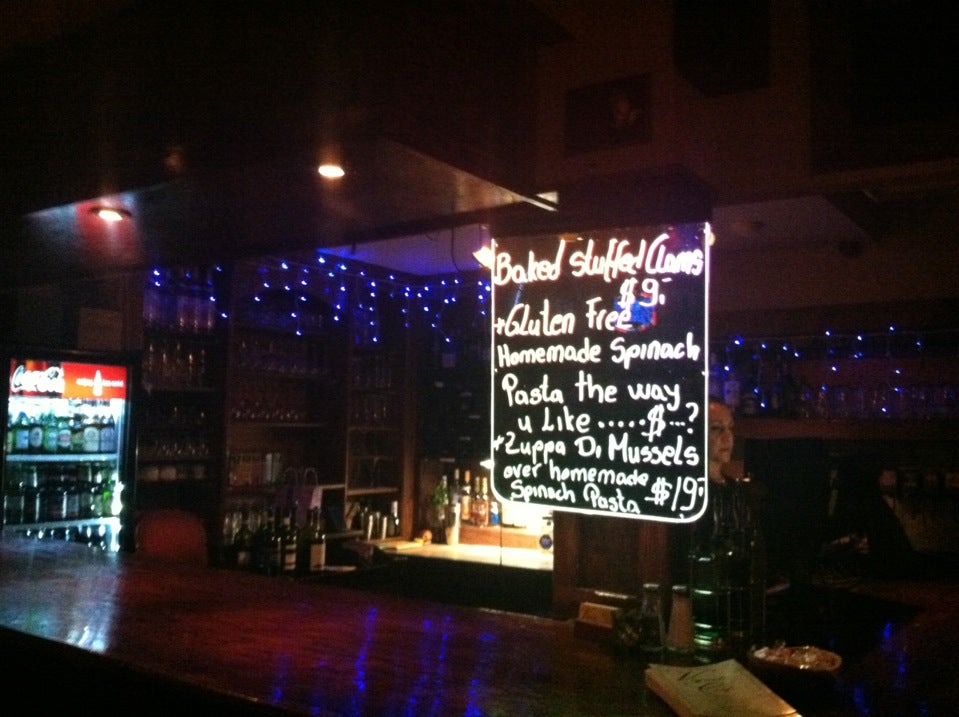 Baked Stuffed Clams
$9.-
+Gluten Free
Homemade Spinach
Pasta the way
u Like .....$...?
+Zuppa Di Mussels
over homemade
Spinach Pasta $19.-
Coca-Cola